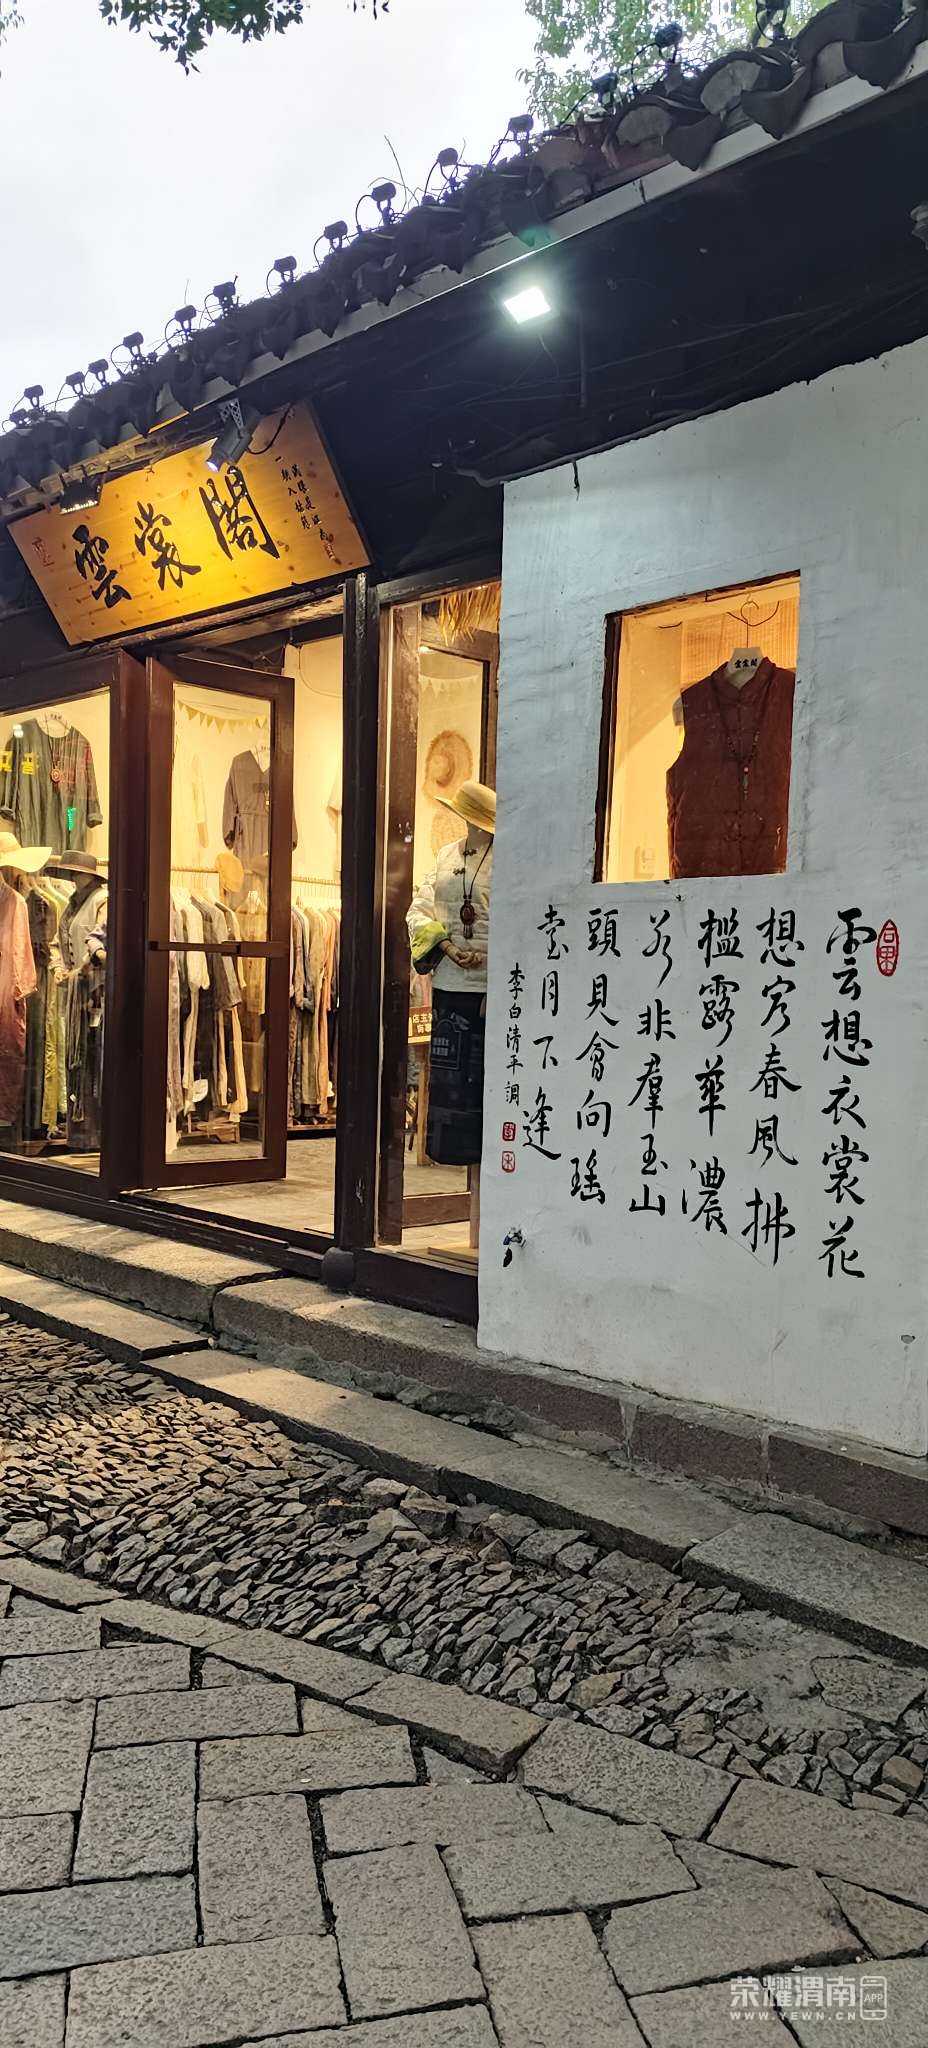 雲裳閣
一朝入姑蘇
雲裳閣
雲想衣裳花
想容春風拂
檻露華濃
若非羣玉山
頭見會向瑤
臺月下逢
李白清平調
荣耀渭南 APP
WWW.YEWN.CN